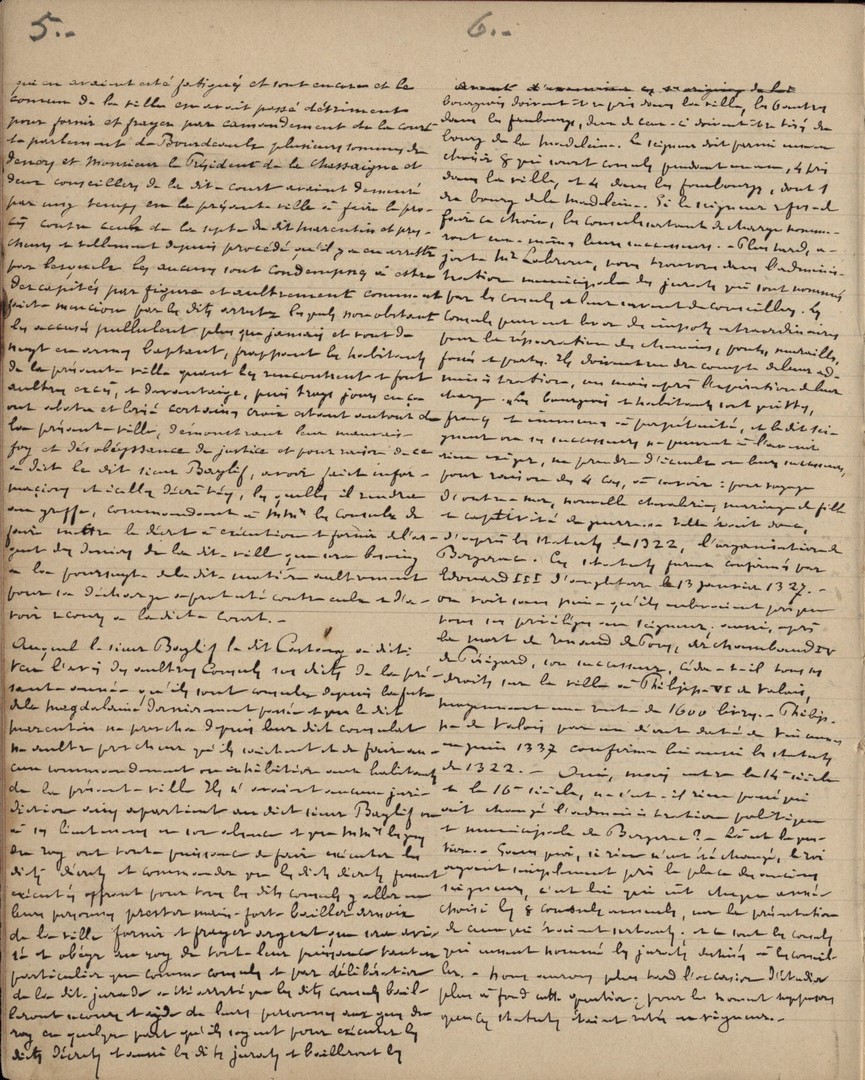 5.-
qui en avaient esté fatigués et sont encores et le
commun de la ville en avoit passé détriment
pour fornir et frayer par commandement de la court
de parlement de Bourdeaulx plusieurs sommes de
deniers et Monsieur le Président de la Chassaigne et
deux conseillers de la dite court avaient demeuré
par ung temps en la présente ville à faire le pro-
cès contre ceulx de la septe du dit marentin et pres-
cheurs et tellement depuis procédé qu'il y a eu arretz
par lesquels les aucuns sont condempnez à estre
decapités par figure et aultrement comme est
faicte mencion par les ditz arretz lesquels nonobstant
les accusés pullulent plus que jamais et vont de
nuyt en armes baptant, frappant les habitants
de la présente ville quant les rencontrent et font
aultres excès, et davantaige, puis troys jours en ça
ont abatu et brisé certaines croix estant autour de
la présente ville, démonstrant leur mauvaise
foy et désobéyssance de justice et pour raison de ce
a dit le dit sieur Baylif, avoir faict infor-
macions et icelles décrétées, les quelles il rendra
au greffe, commandant à MMrs les Consuls de
faire mettre le décret à exécution et fornir de l'ar-
gent des deniers de la dite ville que sera besoing
à la poursuyte de la dite matière aultrement
pour sa décharge a protesté contre eulx et d'a-
voir recours à la dicte court.-
Auquel le sieur Baylif le dit Costeng a dit
veu l'avis des aultres Consuls sus ditz de la pré-
sente année qu'ils sont consuls depuis la feste
de la magdalaine dernierement passée et que le dit
marentin ne prescha depuis leur dict consulat
ne aultre prescheur qu'ils saichent et de faire au-
cun commandement ou inhibition aux habitants
de la présente ville Ils n'avaient aucune juri-
diction ains apartient au dict sieur Baylif ou
à son lieutenant en son absence et que MMrs les gens
du roy ont toute puissance de faire exécuter les
ditz décretz et commander que les dicts décretz fussent
exécutés offrant pour tous les dits consuls y aller en
leurs personnes prester main-forte bailler arnois
de la ville fornir et frayer argent que sera avi-
sé et obéyr au roy de toute leur puissance tant en
particulier que comme consuls et par délibération
de la dite jurade a été arresté que les dits consuls bail-
leront secours et ayde de leurs personnes aux gens du
roy en quelque part qu'ils soyent pour exécuter les
dicts décrets et aussi les dits jurats et bailleront les
6.-
bourgeois doivent être pris dans la ville, les 6 autres
dans les faubourgs, deux de ceux-ci doivent être tirés du
bourg de la Madeleine. Le seigneur doit parmi eux en
choisir 8 qui seront consuls pendant un an, 4 pris
dans la ville, et 4 dans les faubourgs, dont 1
du bourg de la Madeleine. Si le seigneur refuse de
faire ce choix, les consuls sortants de charge nomme-
ront eux-mêmes leurs successeurs.- Plus tard, a-
joute Mr Labroue, nous trouvons dans l'adminis-
tration municipale des jurats qui sont nommés
par les consuls et leur servent de conseillers. Les
Consuls peuvent lever des impôts extraordinaires
pour la réparation des chemins, ponts, murailles,
fossés et portes. Ils doivent rendre compte de leur ad-
ministration, un mois après l'expiration de leur
charge. "Les bourgeois et habitants sont quittes,
francs et immuns à perpétuité, et le dit sei-
gneur ou ses successeurs ne peuvent à l'avenir
rien exiger, ne prendre d'iceulx ou leurs successeurs,
pour raison des 4 cas, à savoir : pour voyage
d'outre-mer, nouvelle chevalerie, mariage de fille
et captivité de guerre." Telle était donc,
d'après les statuts de 1322, l'organisation de
Bergerac. Ces statuts furent confirmés par
Edouard III d'Angleterre le 13 janvier 1327.-
On voit sans peine qu'ils enlevaient presque
tous ses privilèges au seigneur; aussi, après
la mort de Renaud de Pons, Archambaud IV
de Périgord, son successeur, céda-t-il tous ses
droits sur la ville à Philippe VI de Valois,
moyennant une rente de 1600 livres.- Philip-
pe de Valois par un décret daté de Vincennes
en juin 1337 confirma lui aussi les statuts
de 1322.- Oui, mais entre le 14e siècle
et le 16e siècle, ne s'est-il rien passé qui
ait changé l'administration politique
et municipale de Bergerac?- Là est la ques-
tion.- Sans quoi, si rien n'eût été changé, le roi
ayant simplement pris la place des anciens
seigneurs, c'est lui qui eût chaque année
choisi les 8 consuls annuels, sur la présentation
de ceux qui étaient sortants; et ce sont les consuls
qui eussent nommé les jurats destinés à les conseil-
ler.- Nous aurons plus tard l'occasion d'étudier
plus à fond cette question; pour le moment supposons
que ces statuts étaient restés en vigueur.-